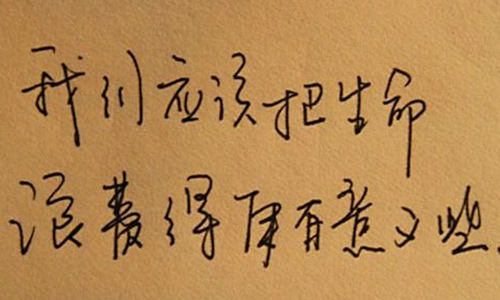 我们应该把生命
浪费得更有意义些.